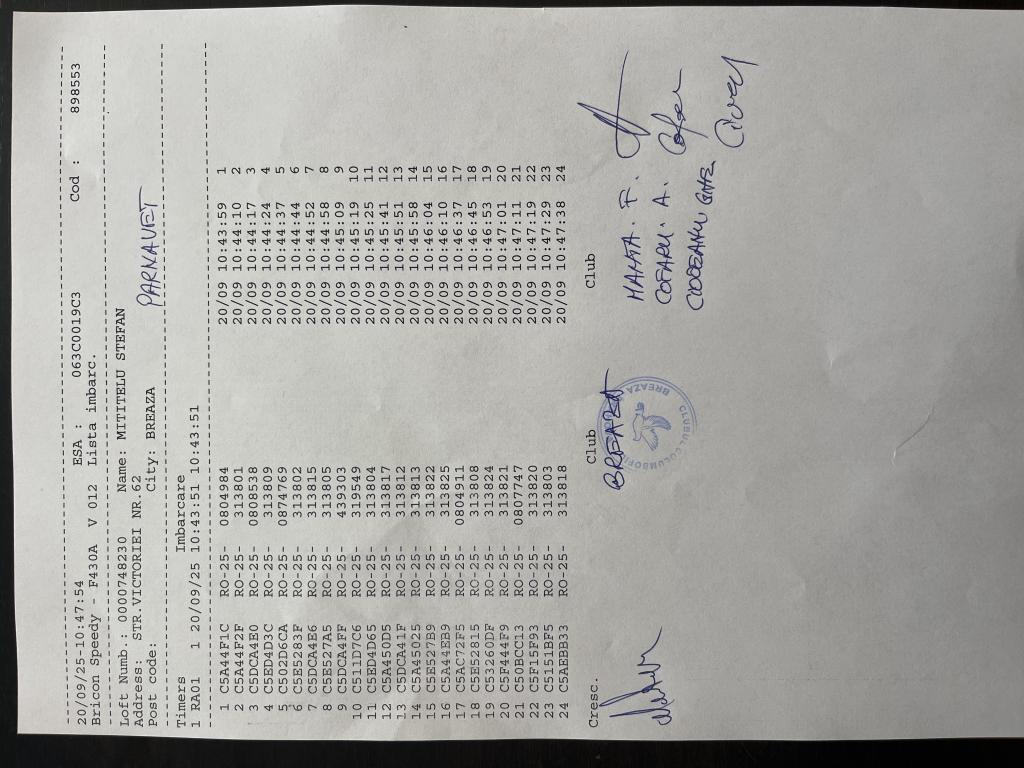 20/09/25-10:47:54 ESA : 063C0019C3 Cod : 898553
Bricon Speedy - F430A V 012 Lista imbarc.
Loft Numb.: 0000748230 Name: MITITELU STEFAN
Address: STR.VICTORIEI NR.62
Post code: City: BREAZA PARNAVET
Timers Imbarcare
1 RA01 1 20/09/25 10:43:51 10:43:51
1 C5A44F1C RO-25- 0804984 20/09 10:43:59 1
2 C5A44F2F RO-25- 313801 20/09 10:44:10 2
3 C5DCA4E0 RO-25- 0808538 20/09 10:44:17 3
4 C5ED4D3C RO-25- 313809 20/09 10:44:24 4
5 C502D6CA RO-25- 0874769 20/09 10:44:37 5
6 C5E5283F RO-25- 313802 20/09 10:44:44 6
7 C5DCA4E6 RO-25- 313815 20/09 10:44:52 7
8 C5E527A5 RO-25- 313805 20/09 10:44:58 8
9 C5DCA4FF RO-25- 439303 20/09 10:45:09 9
10 C511D7C6 RO-25- 319549 20/09 10:45:19 10
11 C5ED4D65 RO-25- 313804 20/09 10:45:25 11
12 C5A450D5 RO-25- 313817 20/09 10:45:41 12
13 C5DCA41F RO-25- 313812 20/09 10:45:51 13
14 C5A45025 RO-25- 313813 20/09 10:45:58 14
15 C5E527B9 RO-25- 313822 20/09 10:46:04 15
16 C5A44EB9 RO-25- 313825 20/09 10:46:10 16
17 C5AC72F5 RO-25- 0804911 20/09 10:46:37 17
18 C5E52815 RO-25- 313808 20/09 10:46:45 18
19 C53260DF RO-25- 313824 20/09 10:46:53 19
20 C5F444F9 RO-25- 313821 20/09 10:47:01 20
21 C50BCC13 RO-25- 0807747 20/09 10:47:11 21
22 C5F15F93 RO-25- 313820 20/09 10:47:19 22
23 C5151BF5 RO-25- 313803 20/09 10:47:29 23
24 C5AEBB33 RO-25- 313818 20/09 10:47:38 24
Cresc. Club Club
BREAZA
CLUBUL COLUMBOFIL BREAZA
HANTA. F.
COFARU. A.